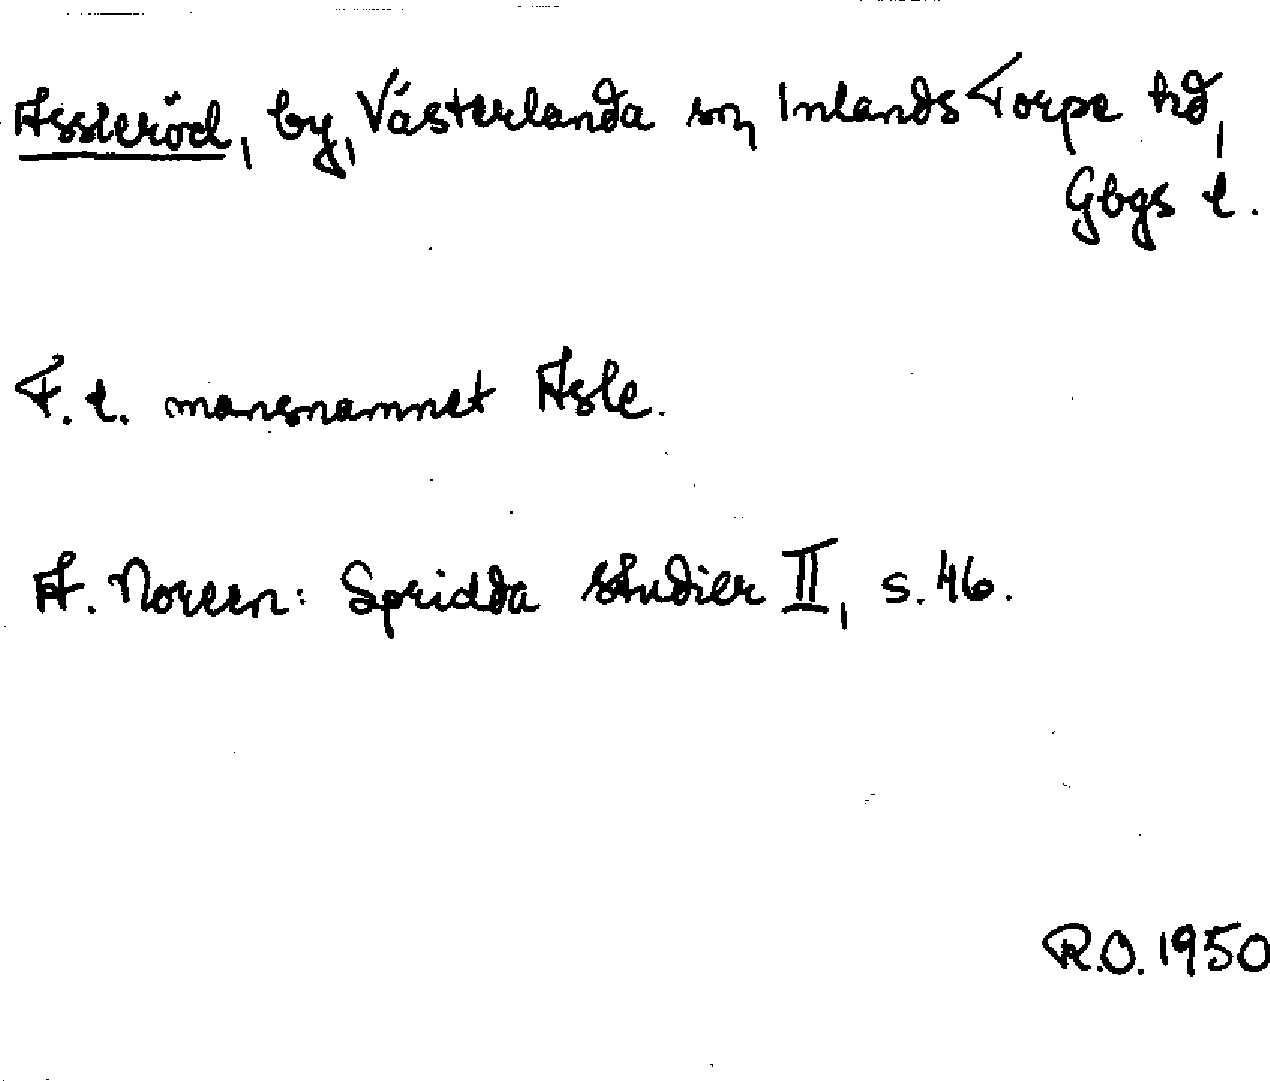 Assleröd, by, Västerlanda sn, Inlands Torpe hd,
Gbgs l.
F. l. mansnamnet Asle.
A. Noreen: Spridda studier II, s. 46.
R.O. 1950